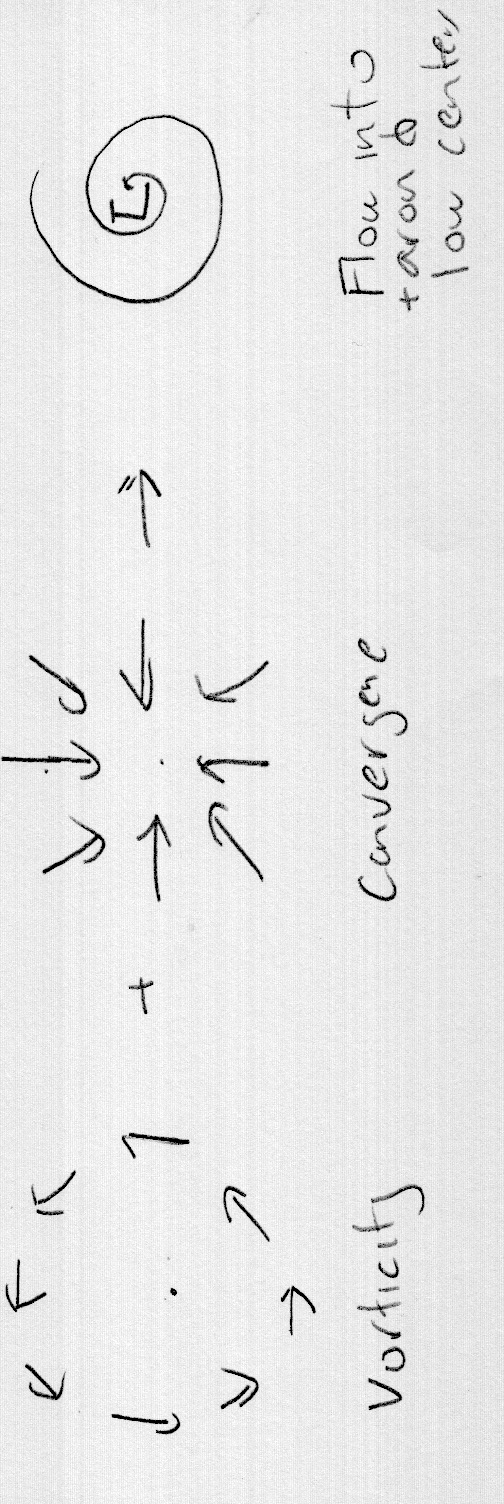 +
L
Vorticity
Convergene
Flow into
+ aron d
low center